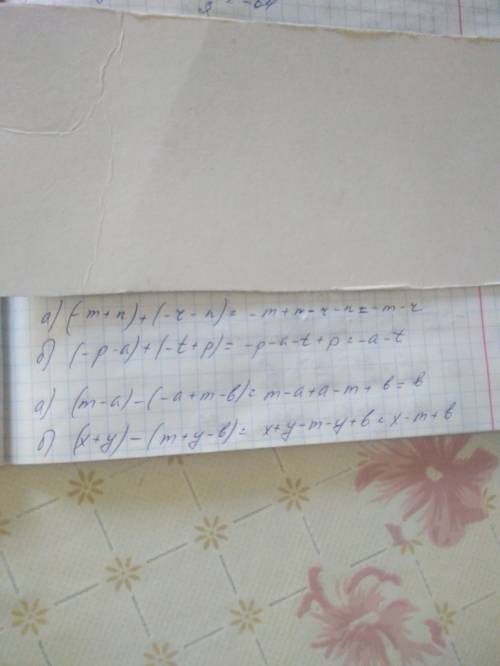 а) (-m+n)+(-r-n)= -m+n-r-n=-m-r
б) (-p-a)+(-t+p)= -p-a-t+p=-a-t
а) (m-a)-(-a+m-b)= m-a+a-m+b=b
б) (x+y)-(m+y-b)= x+y-m-y+b=x-m+b